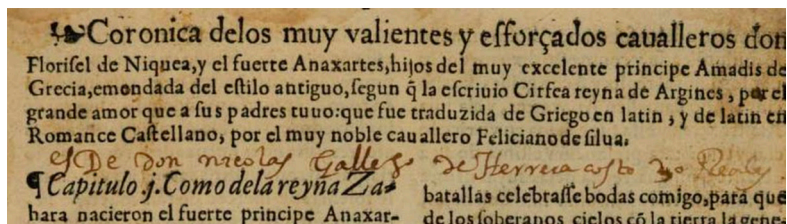 Coronica delos muy valientes y esforçados caualleros don
Florisel de Niquea,y el fuerte Anaxartes,hijos del muy excelente principe Amadis de
Grecia,emendada del estilo antiguo,segun q̃ la escriuio Cirfea reyna de Argines, por el
grande amor que a sus padres tuuo:que fue traduzida de Griego en latin, y de latin en
Romance Castellano, por el muy noble cauallero Feliciano de silua.
es De don nicolas Gallego de Herrera costo Reales
¶ Capitulo .j. Como de la reyna Za-
hara nacieron el fuerte principe Anaxar-
batallas celebrasse bodas comigo,para que
de los soberanos cielos cõ la tierra la gene-